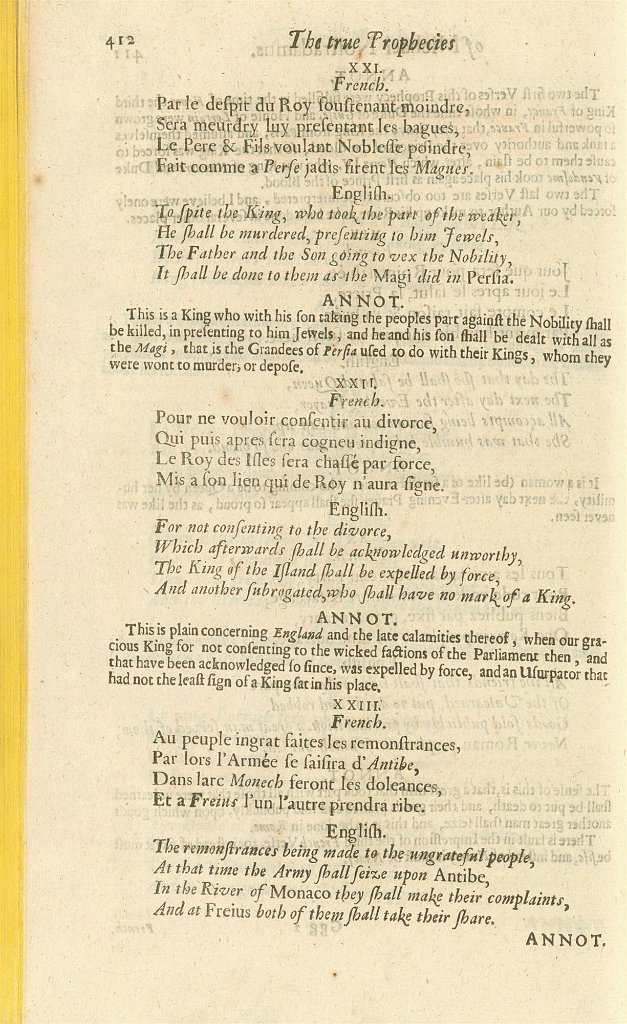 412 The true Prophecies
XXI.
French.
Par le deſpit du Roy ſouſtenant moindre,
Sera meurdry luy preſentant les bagues,
Le Pere & Fils voulant Nobleſſe poindre,
Fait comme a Perſe jadis firent les Magues.
Engliſh.
To ſpite the King, who took the part of the weaker,
He ſhall be murdered, preſenting to him Jewels,
The Father and the Son going to vex the Nobility,
It ſhall be done to them as the Magi did in Perſia.
ANNOT.
This is a King who with his ſon taking the peoples part againſt the Nobility ſhall
be killed, in preſenting to him Jewels, and he and his ſon ſhall be dealt with all as
the Magi, that is the Grandees of Perſia uſed to do with their Kings, whom they
were wont to murder, or depoſe.
XXII.
French.
Pour ne vouloir conſentir au divorce,
Qui puis apres ſera cogneu indigne,
Le Roy des Iſles ſera chaſſé par force,
Mis a ſon lien qui de Roy n'aura ſigne.
Engliſh.
For not conſenting to the divorce,
Which afterwards ſhall be acknowledged unworthy,
The King of the Iſland ſhall be expelled by force,
And another ſubrogated, who ſhall have no mark of a King.
ANNOT.
This is plain concerning England and the late calamities thereof, when our gra-
cious King for not conſenting to the wicked factions of the Parliament then, and
that have been acknowledged ſo ſince, was expelled by force, and an Uſurpator that
had not the leaſt ſign of a King ſat in his place.
XXIII.
French.
Au peuple ingrat faites les remonſtrances,
Par lors l'Armée ſe ſaiſira d'Antibe,
Dans larc Monech feront les doleances,
Et a Freius l'un l'autre prendra ribe.
Engliſh.
The remonſtrances being made to the ungrateful people,
At that time the Army ſhall ſeize upon Antibe,
In the River of Monaco they ſhall make their complaints,
And at Freius both of them ſhall take their ſhare.
ANNOT.